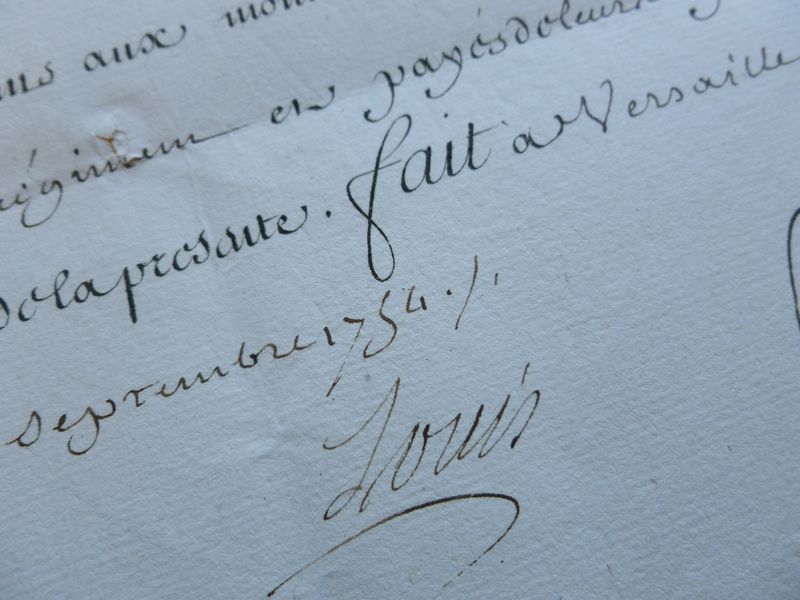 aux
régiment en payes de leurs
de la presante. fait a Versaille
septembre 1754./.
Louis